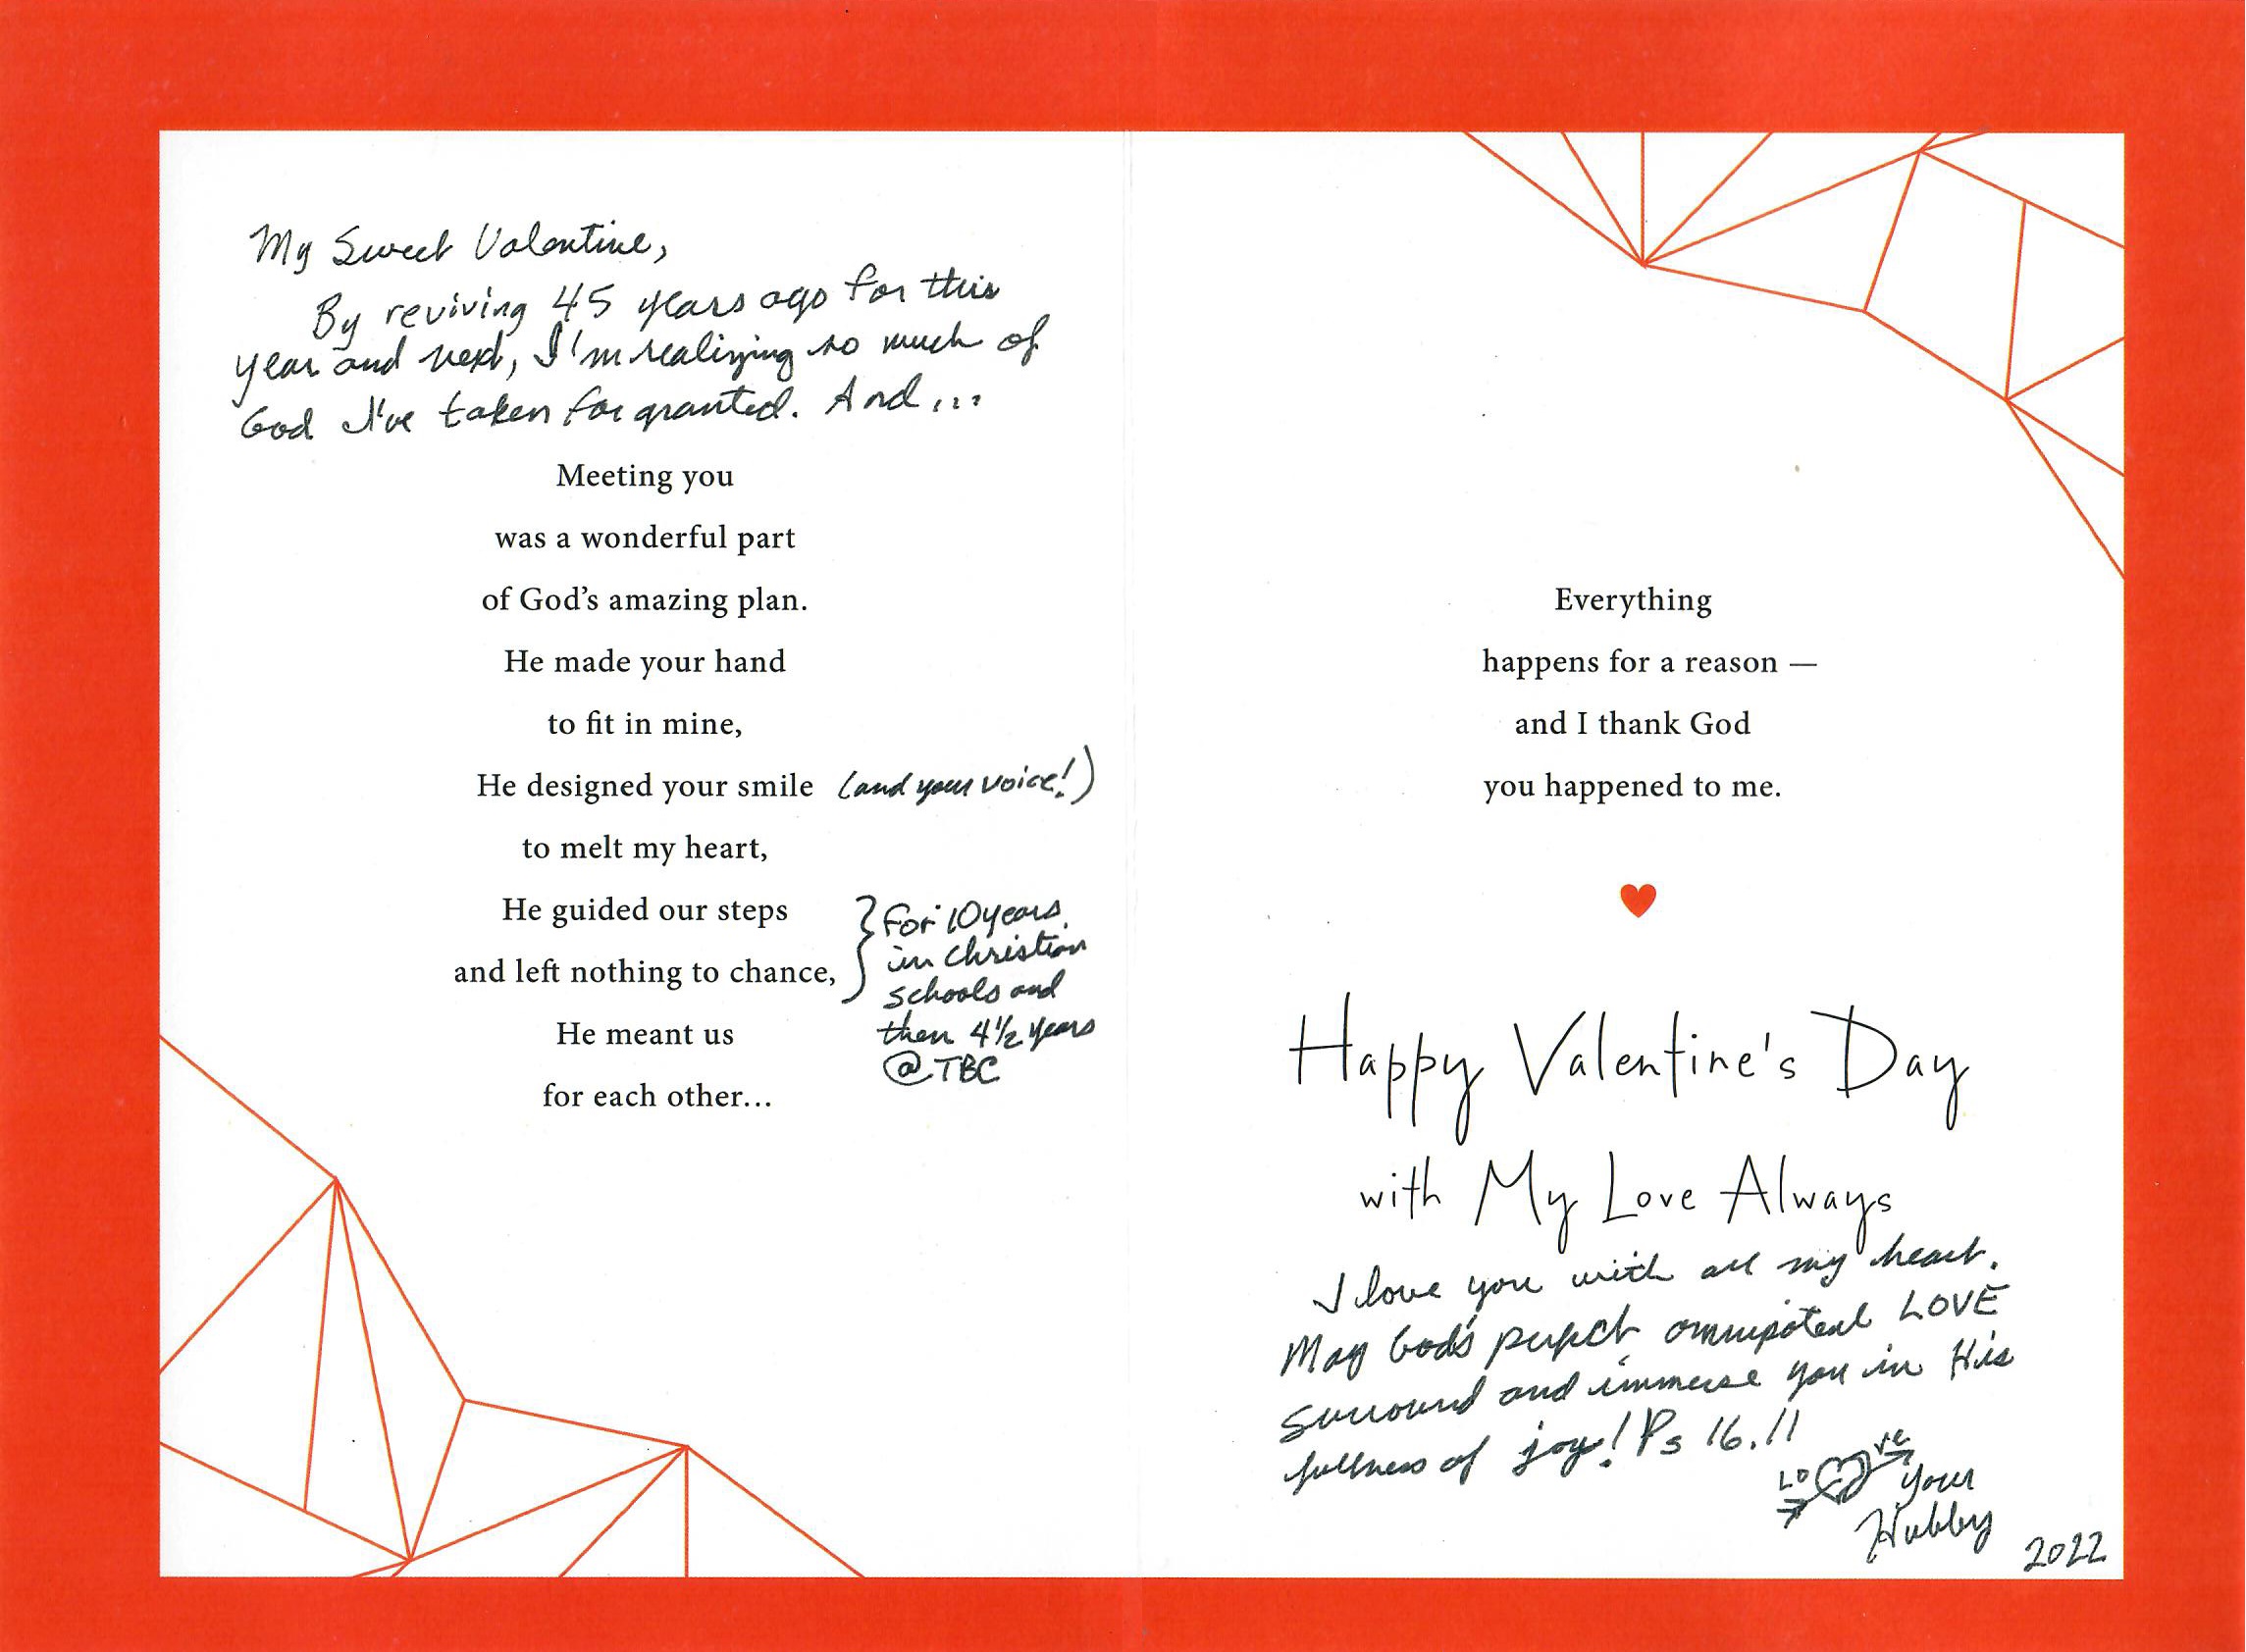 My Sweet Valentine,
By reviving 45 years ago for this
year and next, I'm realizing so much of
God I've taken for granted. And...
Meeting you
was a wonderful part
of God's amazing plan.
He made your hand
to fit in mine,
He designed your smile (and your voice!)
to melt my heart,
He guided our steps
and left nothing to chance,
} For 10 years
in Christian
schools and
then 4½ years
@ TBC
He meant us
for each other...
Everything
happens for a reason —
and I thank God
you happened to me.
Happy Valentine's Day
with My Love Always
I love you with all my heart.
May God's perfect omnipotent LOVE
surround and immerse you in His
fullness of joy! Ps 16.11
LO VE
Your
Hubby
2022